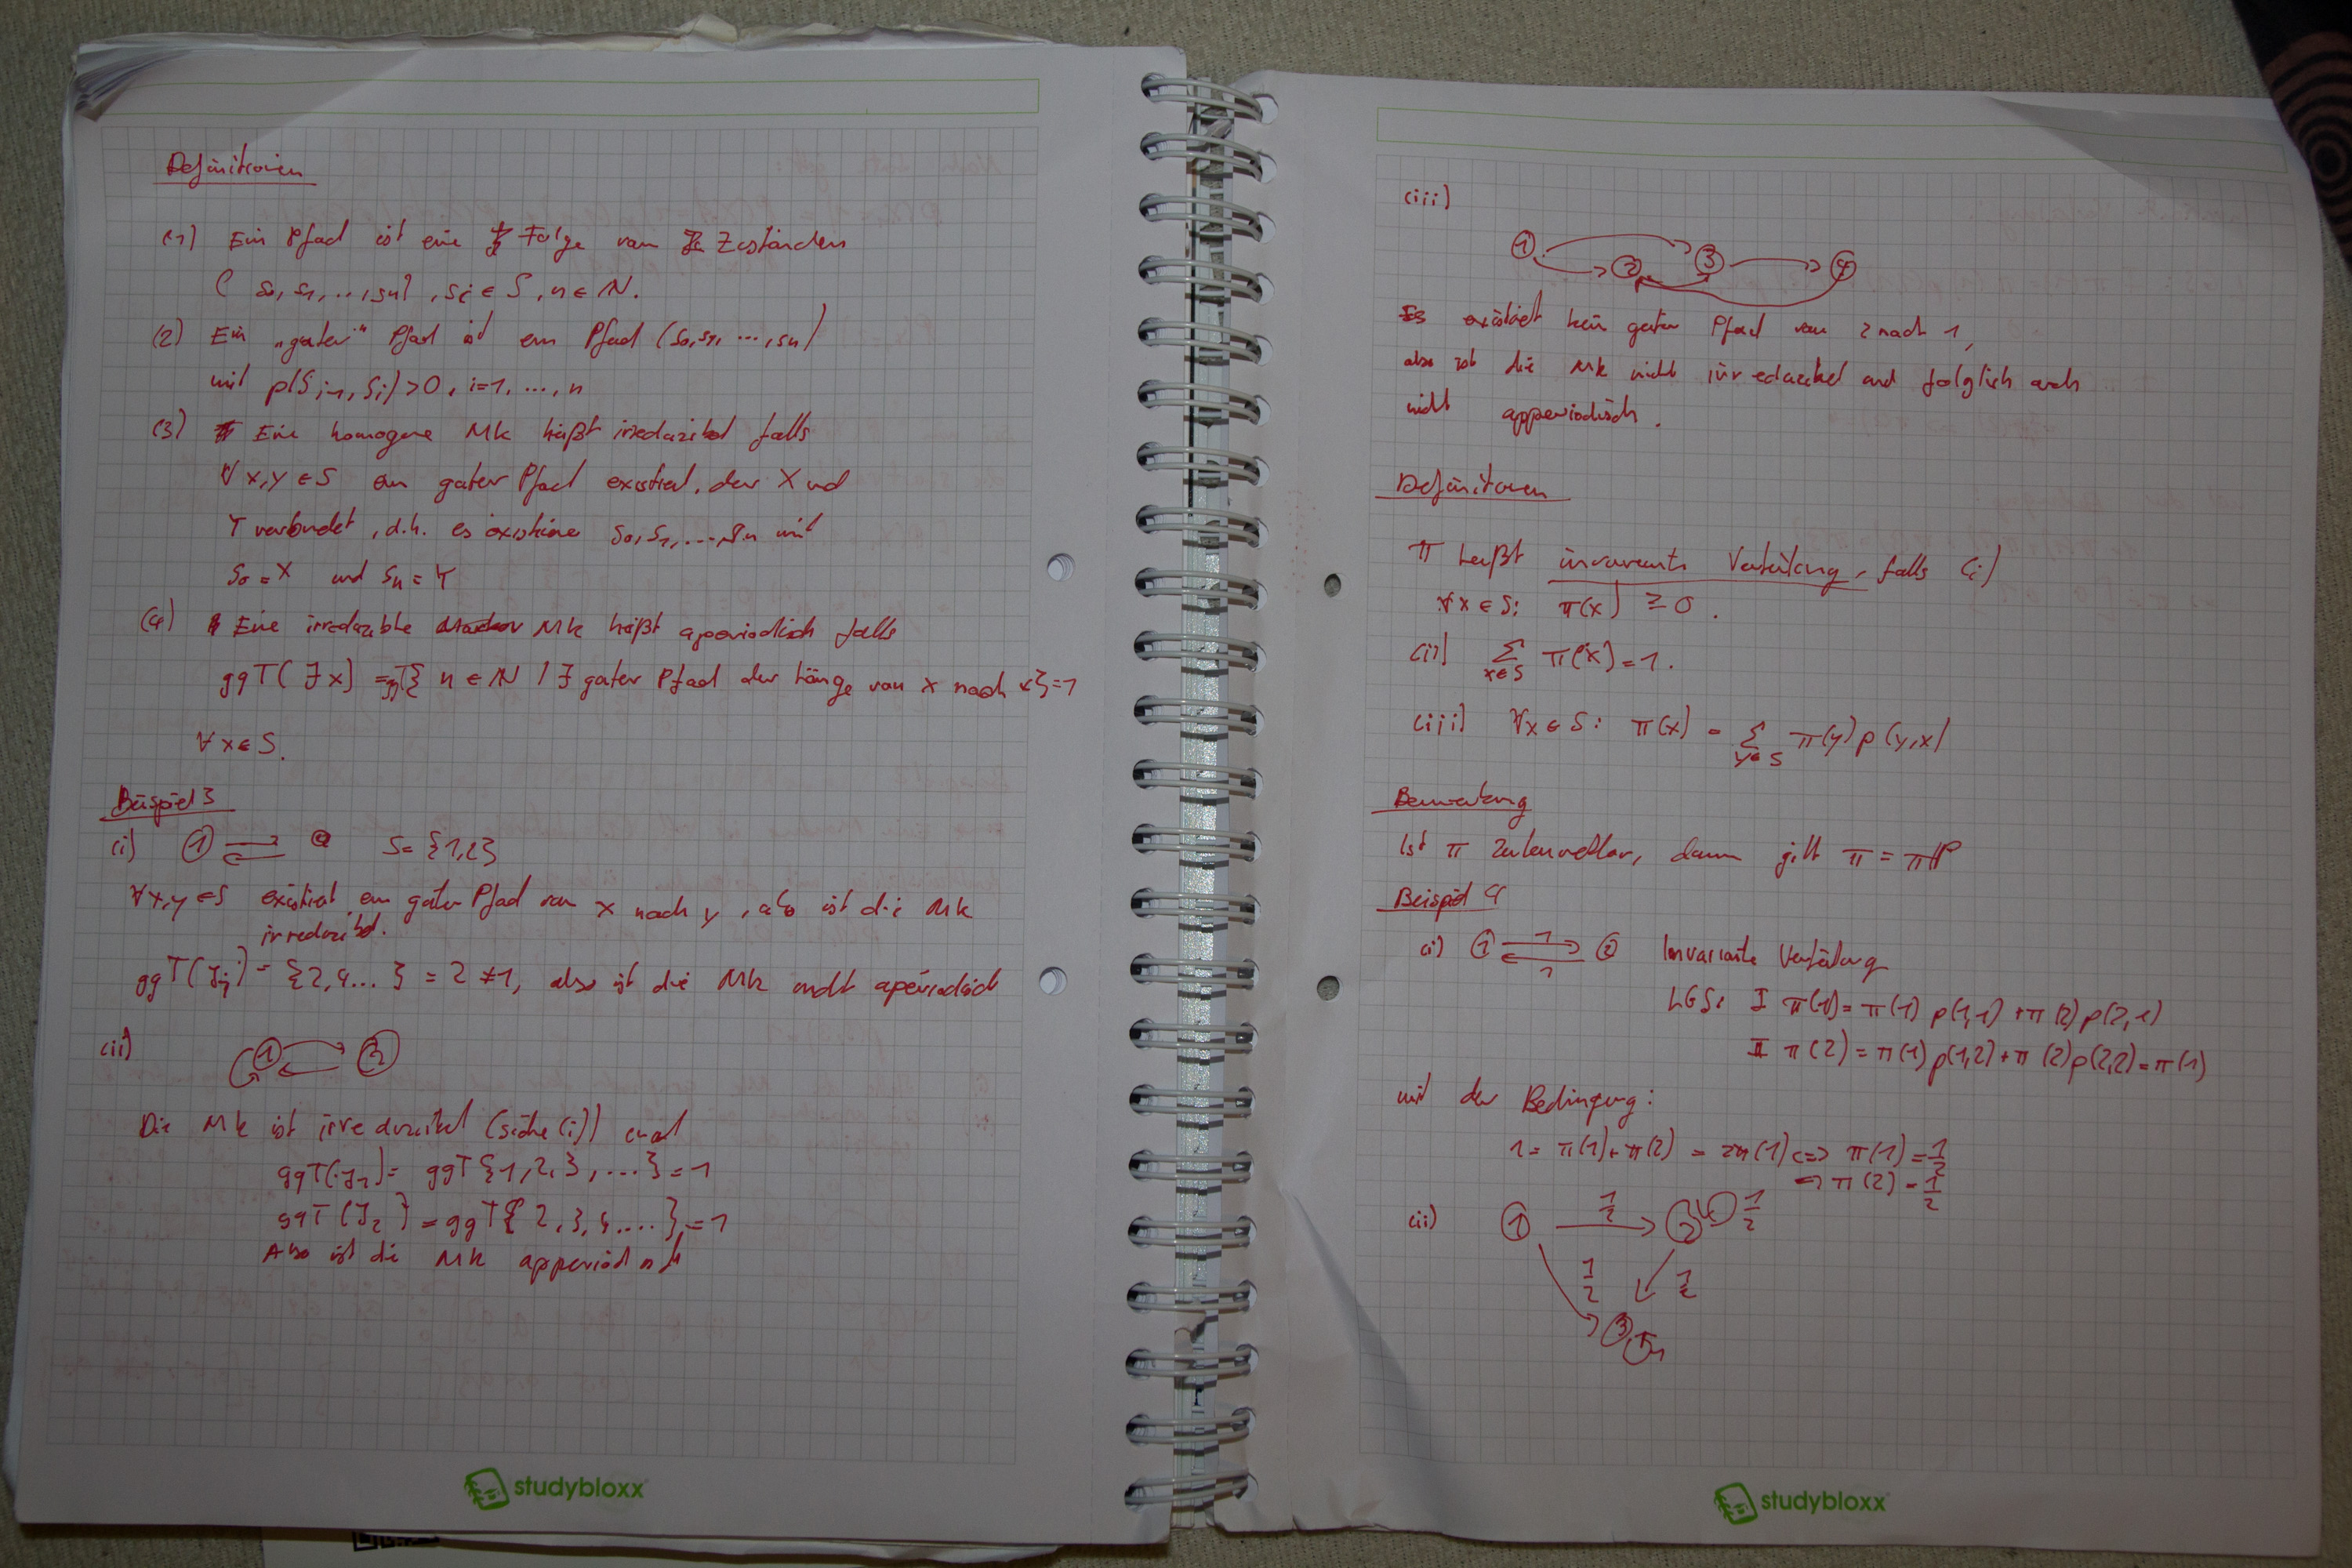 Definitionen
(1) Ein Pfad ist eine Folge von Zuständen
( s0, s1, ..., sn) , si ∈ S , n ∈ N.
(2) Ein „guter" Pfad ist ein Pfad (s0, s1, ..., sn)
mit p(Si-1, Si) > 0 , i=1, ..., n
(3) Eine homogene MK heißt irreduzibel falls
∀ x,y ∈ S ein guter Pfad existiert, der X und
Y verbindet, d.h. es existiere s0, s1, ..., sn mit
s0 = X und sn = Y
(4) Eine irreduzible MK heißt aperiodisch falls
ggT( Jx) = ggT{ n ∈ N / ∃ guter Pfad der Länge von x nach x} = 1
∀ x ∈ S.
Beispiel 3
(i) 1 2 S = {1,2}
∀x,y ∈ S existiert ein guter Pfad von x nach y , also ist die MK
irreduzibel.
ggT( ) = {2,4...} = 2 ≠ 1, also ist die MK nicht aperiodisch
(ii) 1 2
Die MK ist irreduzibel (siehe (i)) und
ggT(J1) = ggT{1,2,3,...} = 1
ggT(J2) = ggT{2,3,4....} = 1
Also ist die MK apperiodisch
studybloxx
(iii)
1 2 3 4
Es existiert kein guter Pfad von 2 nach 1,
also ist die MK nicht irreduzibel und folglich auch
nicht apperiodisch.
Definitionen
π heißt invariante Verteilung, falls (i)
∀x ∈ S: π(x) ≥ 0 .
(ii) Σ x∈S π(x) = 1.
(iii) ∀x ∈ S: π(x) = Σ y∈S π(y) p(y,x)
Bemerkung
Ist π Zeilenvektor, dann gilt π = πP
Beispiel 4
(i) 1 1 1 2 Invariante Verteilung
LGS: I π(1) = π(1) p(1,1) + π(2) p(2,1)
II π(2) = π(1) p(1,2) + π(2) p(2,2) = π(1)
mit der Bedingung:
1 = π(1) + π(2) = 2π(1) <=> π(1) = 1/2
=> π(2) = 1/2
(ii) 1 1/2 2 1/2
1/2 1/2
3 1
studybloxx